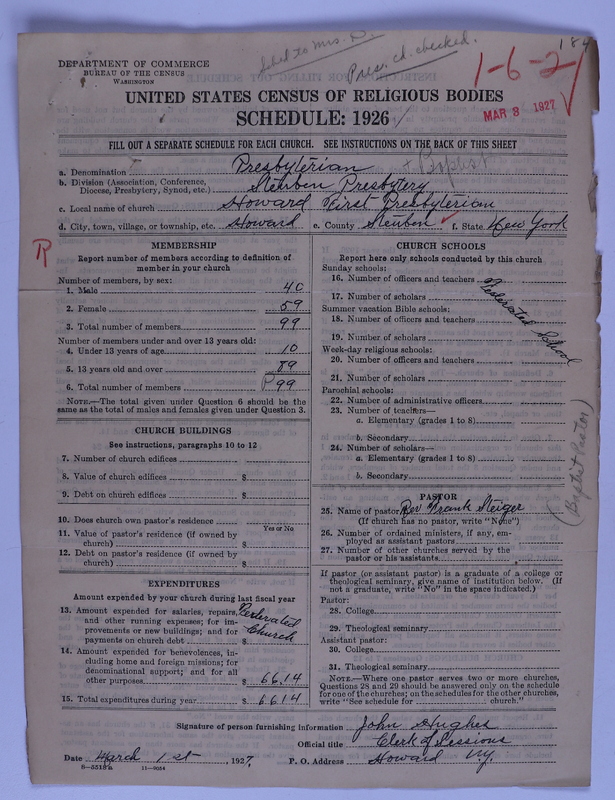 184
DEPARTMENT OF COMMERCE
BUREAU OF THE CENSUS
WASHINGTON
to Mrs. D.
Pres. ch. checked.
1-6-2
MAR 8 1927
UNITED STATES CENSUS OF RELIGIOUS BODIES
SCHEDULE: 1926
FILL OUT A SEPARATE SCHEDULE FOR EACH CHURCH. SEE INSTRUCTIONS ON THE BACK OF THIS SHEET
a. Denomination Presbyterian + Baptist
b. Division (Association, Conference, Diocese, Presbytery, Synod, etc.) Steuben Presbytery
c. Local name of church Howard First Presbyterian
d. City, town, village, or township, etc. Howard e. County Steuben f. State New York
R
MEMBERSHIP
Report number of members according to definition of
member in your church
Number of members, by sex:
1. Male 40
2. Female 59
3. Total number of members 99
Number of members under and over 13 years old:
4. Under 13 years of age 10
5. 13 years old and over 89
6. Total number of members 99
NOTE.—The total given under Question 6 should be the
same as the total of males and females given under Question 3.
CHURCH BUILDINGS
See instructions, paragraphs 10 to 12
7. Number of church edifices
8. Value of church edifices $
9. Debt on church edifices $
10. Does church own pastor's residence
Yes or No
11. Value of pastor's residence (if owned by
church) $
12. Debt on pastor's residence (if owned by
church) $
EXPENDITURES
Amount expended by your church during last fiscal year
13. Amount expended for salaries, repairs,
and other running expenses; for im-
provements or new buildings; and for
payments on church debt $ Federated Church
14. Amount expended for benevolences, in-
cluding home and foreign missions; for
denominational support; and for all
other purposes $ 66.14
15. Total expenditures during year $ 66.14
CHURCH SCHOOLS
Report here only schools conducted by this church
Sunday schools:
16. Number of officers and teachers
17. Number of scholars
Federated School
Summer vacation Bible schools:
18. Number of officers and teachers
19. Number of scholars
Week-day religious schools:
20. Number of officers and teachers
21. Number of scholars
Parochial schools:
22. Number of administrative officers
23. Number of teachers—
a. Elementary (grades 1 to 8)
b. Secondary
24. Number of scholars—
a. Elementary (grades 1 to 8)
b. Secondary
(Baptist Pastor)
PASTOR
25. Name of pastor Rev Frank Steiger
(If church has no pastor, write "None")
26. Number of ordained ministers, if any, em-
ployed as assistant pastors
27. Number of other churches served by the
pastor or his assistants
If pastor (or assistant pastor) is a graduate of a college or
theological seminary, give name of institution below. (If
not a graduate, write "No" in the space indicated.)
Pastor:
28. College
29. Theological seminary
Assistant pastor:
30. College
31. Theological seminary
NOTE.—Where one pastor serves two or more churches,
Questions 28 and 29 should be answered only on the schedule
for one of the churches; on the schedules for the other churches,
write "See schedule for church."
Signature of person furnishing information John Hughes
Official title Clerk of Sessions
Date March 1st, 1927. P. O. Address Howard N.Y.
8-5518a 11-9054